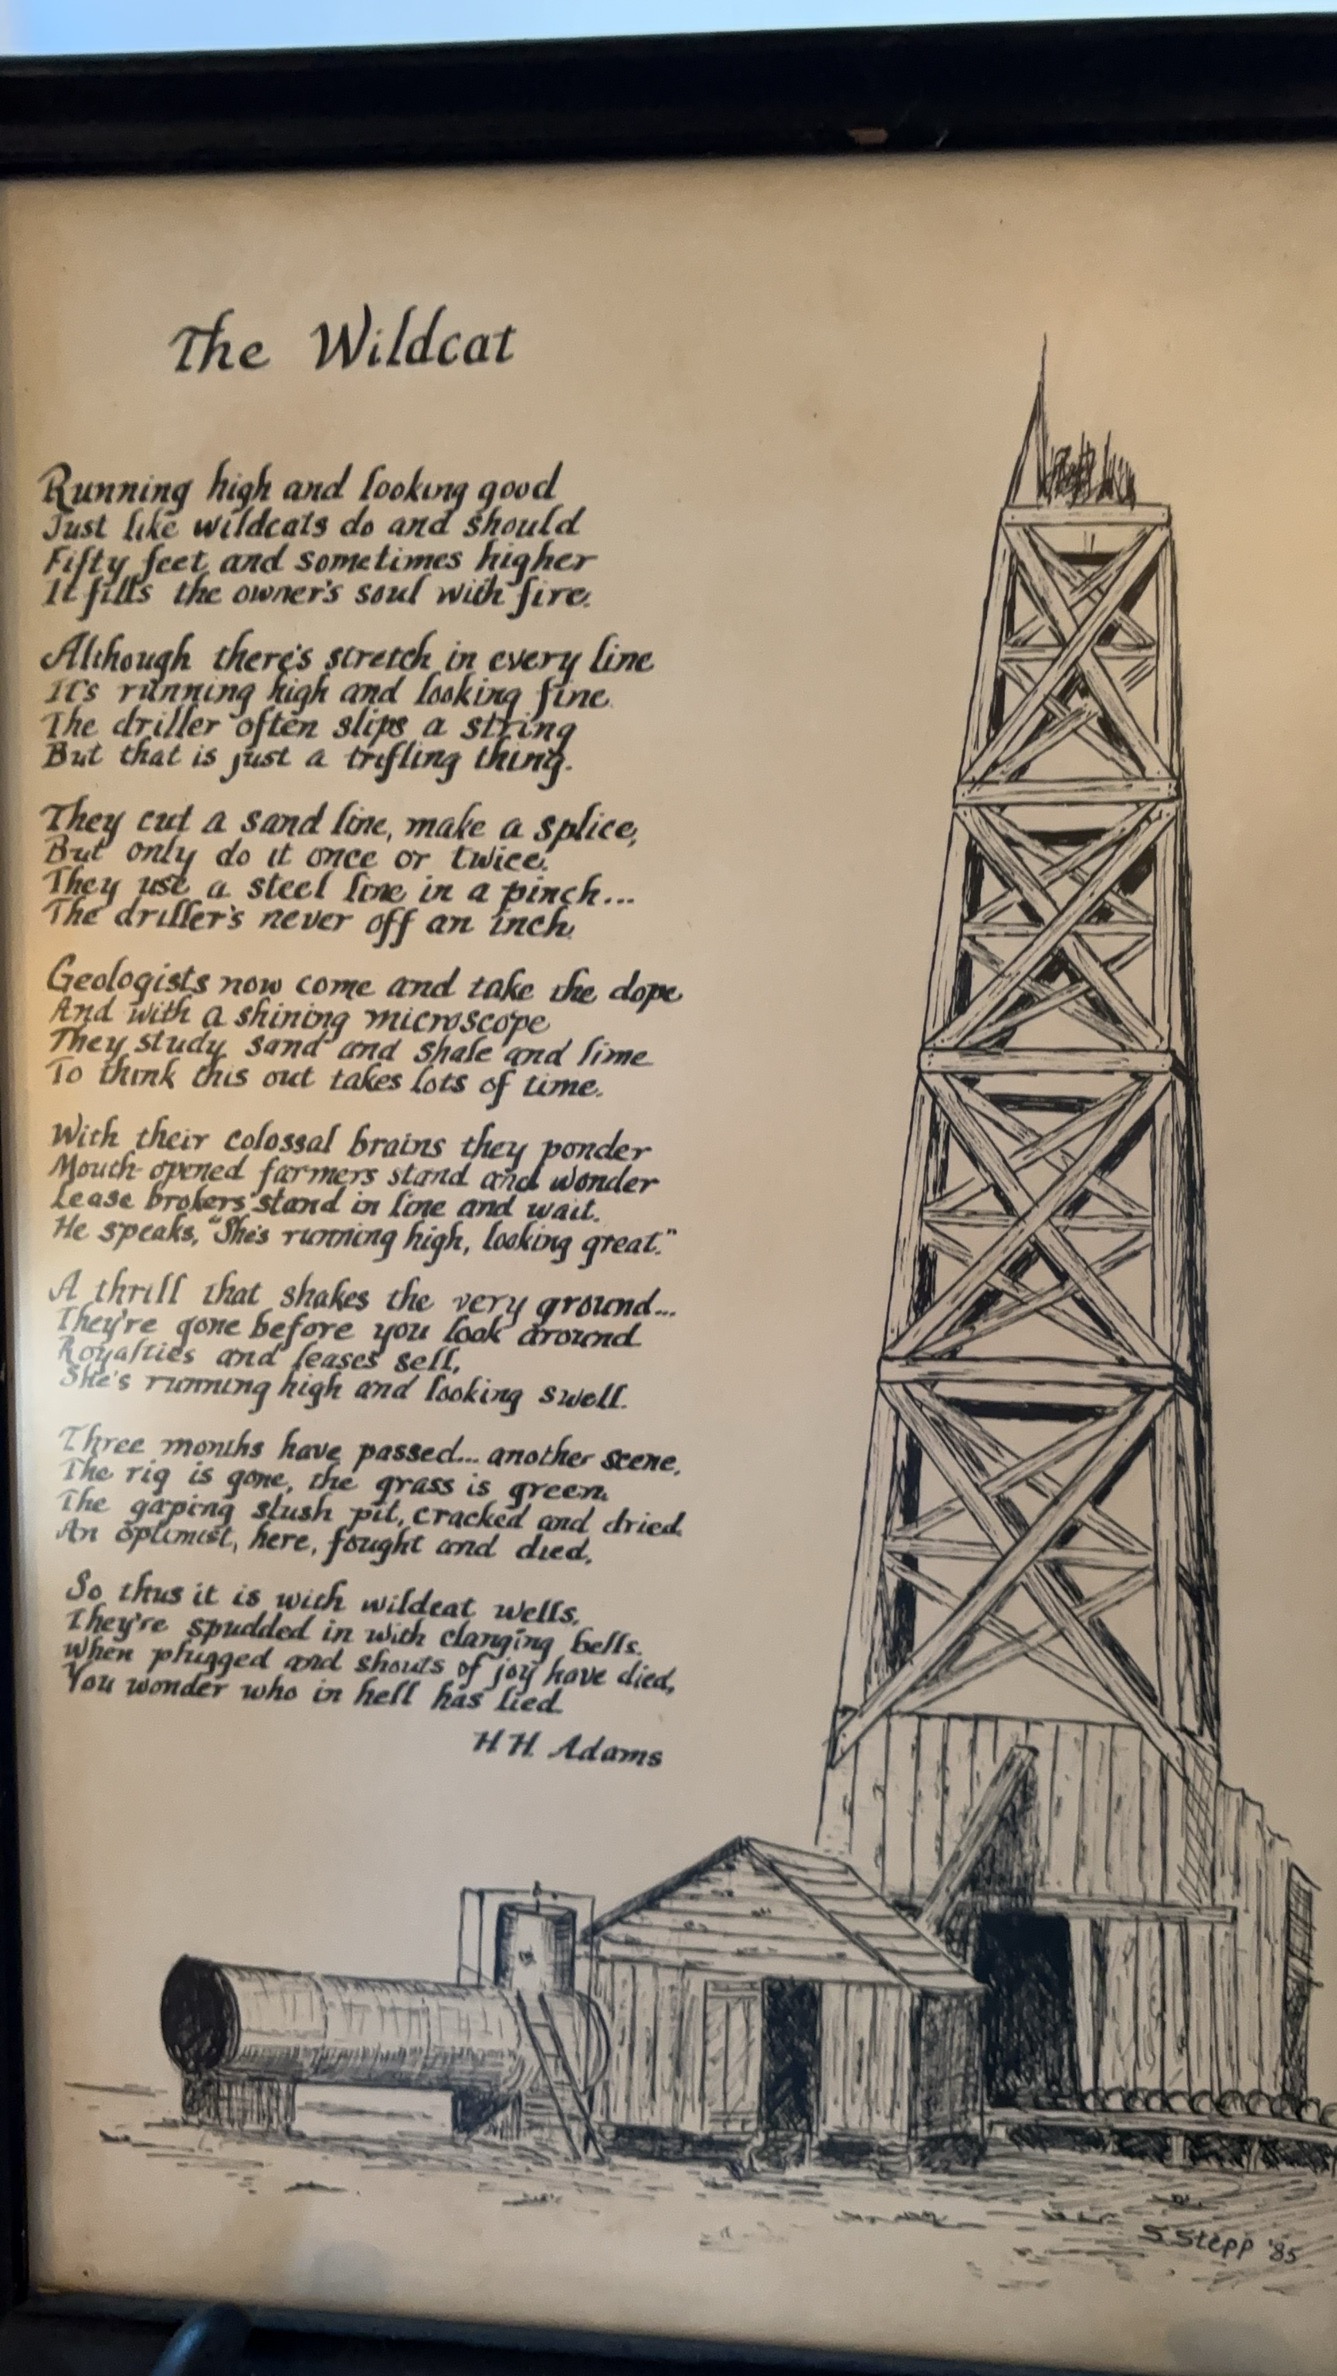 The Wildcat
Running high and looking good
Just like wildcats do and should
Fifty feet and sometimes higher
It fills the owner's soul with fire.
Although there's stretch in every line
It's running high and looking fine.
The driller often slips a string
But that is just a trifling thing.
They cut a sand line, make a splice,
But only do it once or twice.
They use a steel line in a pinch...
The driller's never off an inch.
Geologists now come and take the dope
And with a shining microscope
They study sand and shale and lime
To think this out takes lots of time.
With their colossal brains they ponder
Mouth-opened farmers stand and wonder
Lease brokers stand in line and wait.
He speaks, "She's running high, looking great."
A thrill that shakes the very ground...
They're gone before you look around.
Royalties and leases sell,
She's running high and looking swell.
Three months have passed... another scene,
The rig is gone, the grass is green.
The gaping slush pit, cracked and dried.
An optimist, here, fought and died.
So thus it is with wildcat wells,
They're spudded in with clanging bells.
When plugged and shouts of joy have died,
You wonder who in hell has lied.
H H. Adams
S. Stepp '85